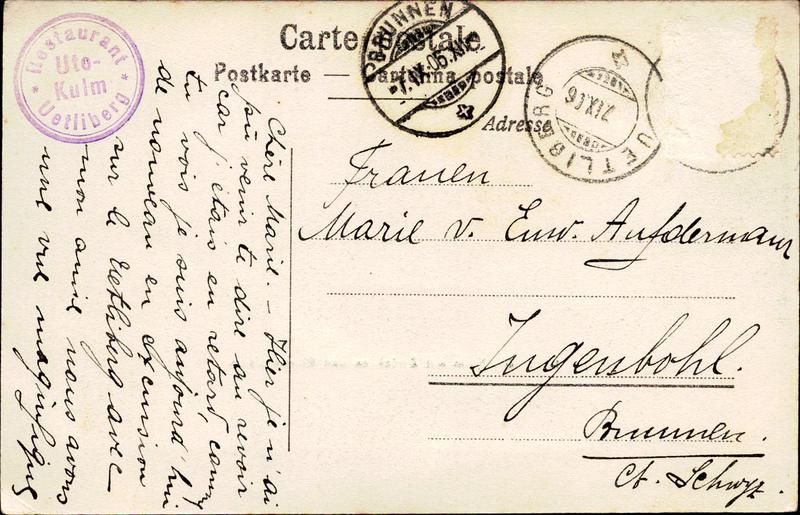 Restaurant
Uto-
Kulm
Uetliberg
Carte postale
Postkarte — Cartolina postale
BRUNNEN
UETLIBERG
7.IX.06
Adresse
Frauen
Marie v. Euw. Aufdermaur
Ingenbohl.
Brunnen.
Ct. Schwyz.
Chère Marie. – Hier je n'ai
pu venir te dire au revoir
car j'étais en retard, comme
tu vois je suis aujourd'hui
de nouveau en excursion
sur le Uetliberg avec
mon amie nous avons
une vue magnifique